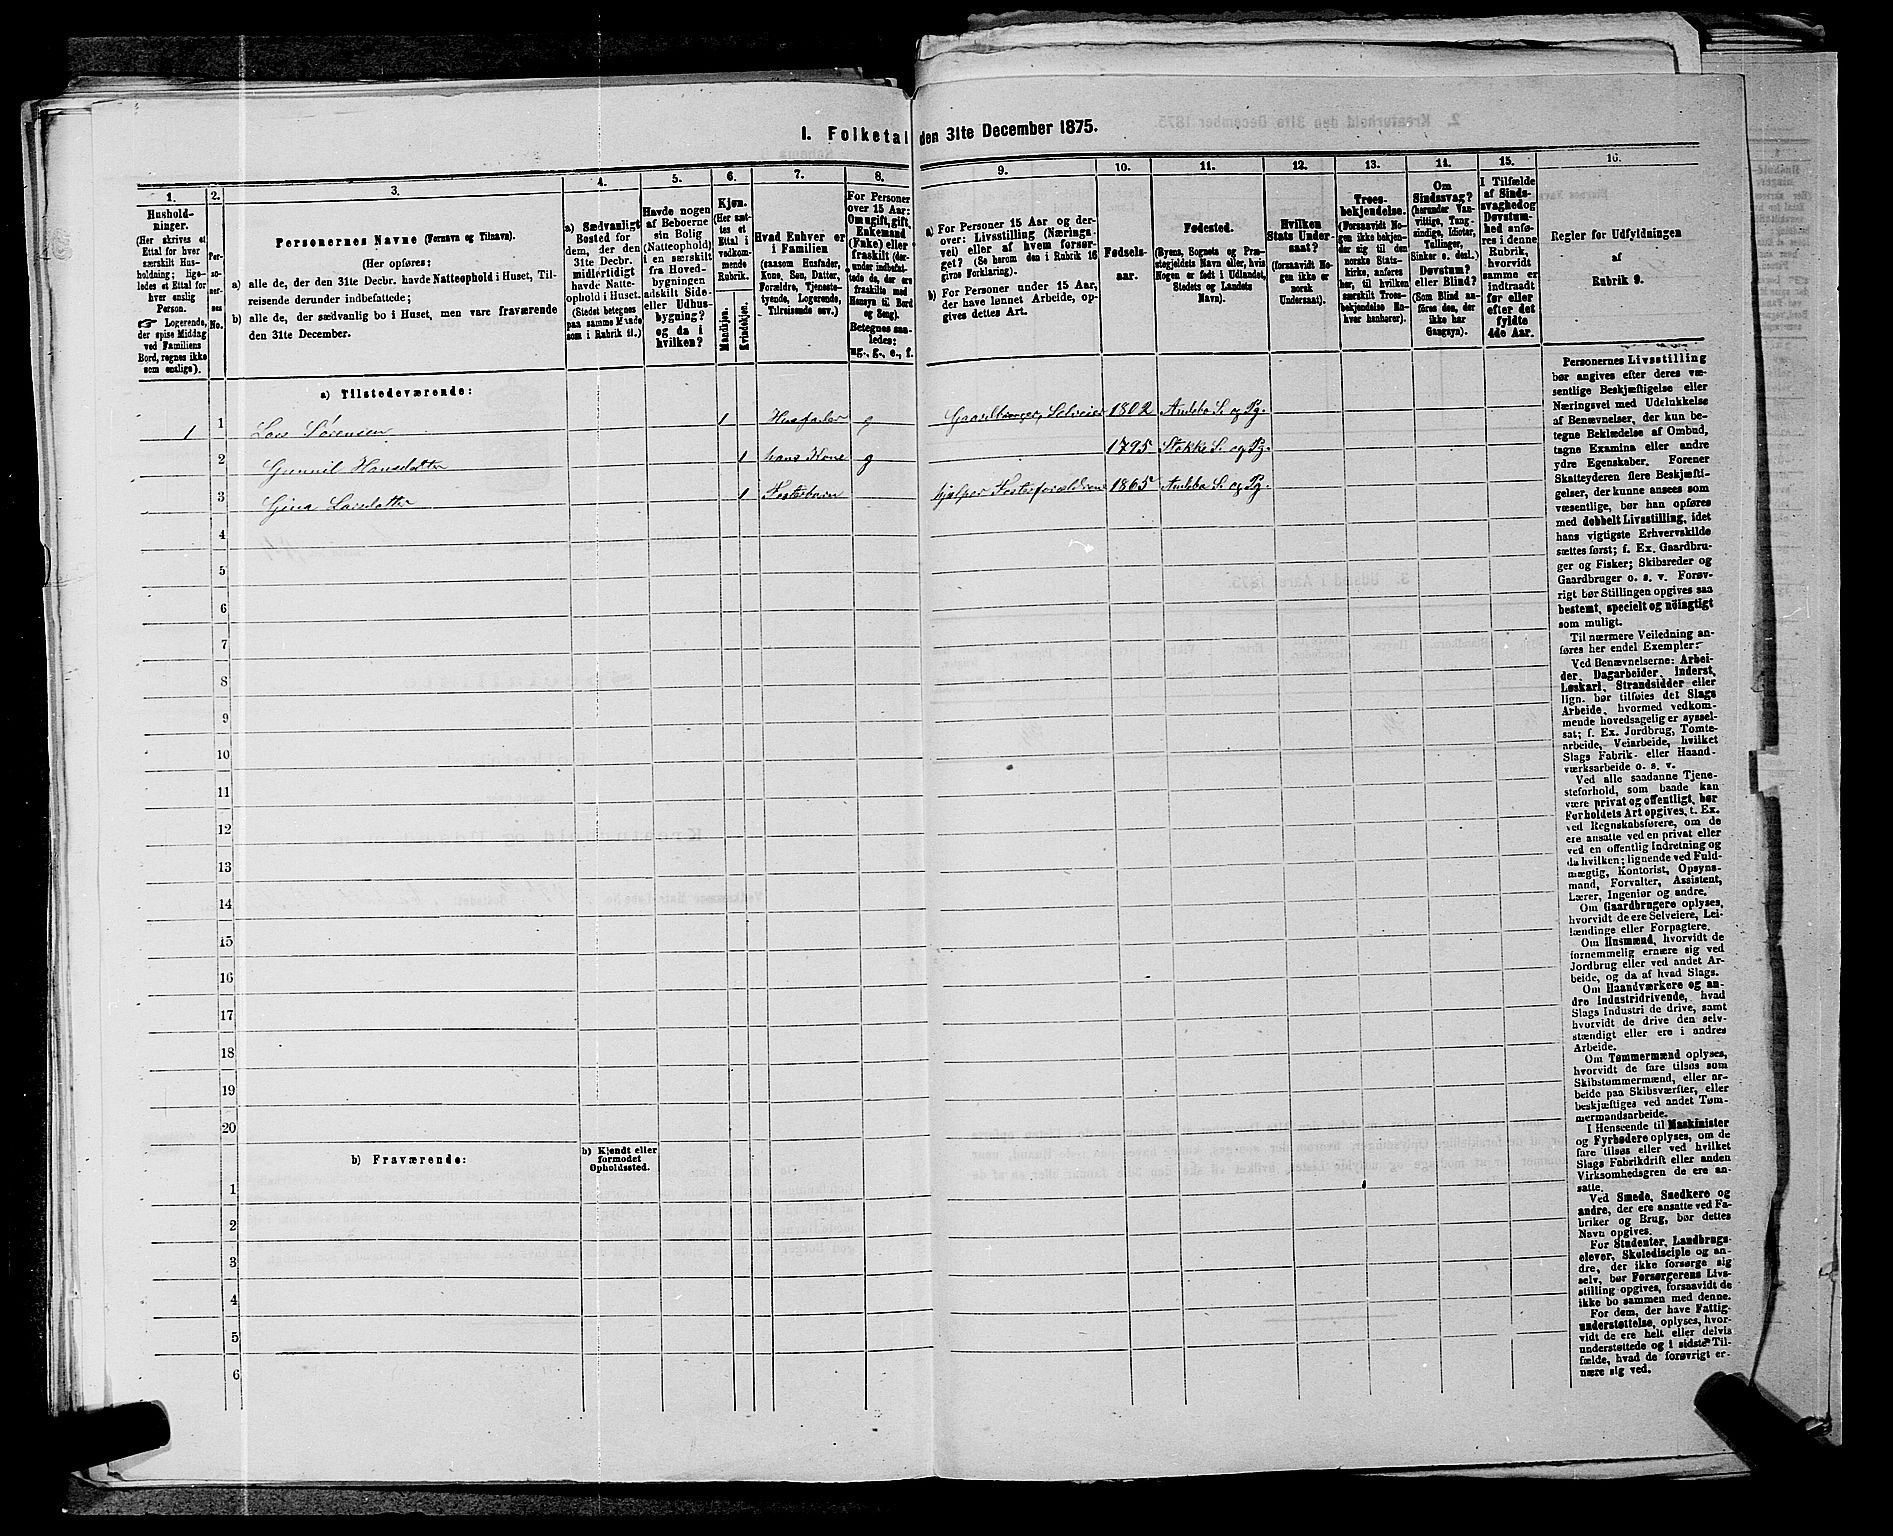 I. Folketal den 31te December 1875.
1.
2.
3.
4.
5.
6.
7.
8.
9.
10.
11.
12.
13.
14.
15.
16.
Hushold-
ninger.
(Her skrives et
Ettal for hver
særskilt Hus-
holdning; lige-
ledes et Ettal for
hver enslig
Person.
☞ Logerende,
der spise Middag
ved Familiens
Bord, regnes ikke
som enslige).
Per-
so-
ner-
nes
No.
Personernes Navne (Fornavn og Tilnavn).
(Her opføres:
a) alle de, der den 31te Decbr. havde Natteophold i Huset, Til-
reisende derunder indbefattede;
b) alle de, der sædvanlig bo i Huset, men vare fraværende
den 31te December.
a) Sædvanligt
Bosted for
dem, der den
31te Decbr.
midlertidigt
havde Natte-
ophold i Huset.
(Stedet betegnes
paa samme Maade
som i Rubrik 11.)
Havde nogen
af Beboerne
sin Bolig
(Natteophold)
i en særskilt
fra Hoved-
bygningen
adskilt Side-
eller Udhus-
bygning?
og da i
hvilken?
Kjøn.
(Her sæt-
tes et
Ettal i
vedkom-
mende
Rubrik.
Mandkjøn.
Kvindekjøn.
Hvad Enhver er
i Familien
(saasom Husfader,
Kone, Søn, Datter,
Forældre, Tjeneste-
tyende, Logerende,
Tilreisende osv.)
For Personer
over 15 Aar:
Om ugift, gift,
Enkemand
(Enke) eller
fraskilt (der-
under indbefat-
tede de, der ere
fraskilte med
Hensyn til Bord
og Seng).
Betegnes saa-
ledes:
ug., g., e., f.
a) For Personer 15 Aar og der-
over: Livsstilling (Nærings-
vei) eller af hvem forsør-
get? (Se herom den i Rubrik 16
givne Forklaring).
b) For Personer under 15 Aar,
der have lønnet Arbeide, op-
gives dettes Art.
Fødsels-
aar.
Fødested.
(Byens, Sognets og Præ-
stegjeldets Navn eller, hvis
Nogen er født i Udlandet,
Stedets og Landets
Navn).
Hvilken
Stats Under-
saat?
(forsaavidt No-
gen ikke er
norsk
Undersaat).
Troes-
bekjendelse.
(Forsaavidt No-
gen ikke bekjen-
der sig til den
norske Stats-
kirke, anføres
her, til hvilken
særskilt Troes-
bekjendelse En-
hver henhører).
Om
Sindssvag?
(herunder Van-
vittige, Tung-
sindige, Idioter,
Tullinger,
Sinker o. desl.)
Døvstum?
eller Blind?
(Som Blind an-
føres den, der
ikke har
Gangsyn).
I Tilfælde
af Sinds-
svaghed og
Døvstum-
hed anfø-
res i denne
Rubrik,
hvorvidt
samme er
indtraadt
før eller
efter det
fyldte
4de Aar.
Regler for Udfyldningen
af
Rubrik 9.
a) Tilstedeværende:
1 1 Lars Sørensen 1 Husfader g Gaardbruger, Selveier 1802 Andebo S. og Pg.
2 Gunnil Hansdatter 1 hans Kone g 1795 Stokke S. og Pg.
3 Gina Larsdatter 1 Fosterbarn hjælper Fosterforældrene 1865 Andebo S. og Pg.
4
5
6
7
8
9
10
11
12
13
14
15
16
17
18
19
20
b) Fraværende:
b) Kjendt eller
formodet
Opholdssted.
1
2
3
4
5
6
Personernes Livsstilling
bør angives efter deres væ-
sentlige Beskjæftigelse eller
Næringsvei med Udelukkelse
af Benævnelser, der kun be-
tegne Beklædelse af Ombud,
tagne Examina eller andre
ydre Egenskaber. Forener
Skatteyderen flere Beskjæfti-
gelser, der kunne ansees som
væsentlige, bør han opføres
med dobbelt Livsstilling, idet
hans vigtigste Erhvervskilde
sættes først; f. Ex. Gaardbru-
ger og Fisker; Skibsreder og
Gaardbruger o. s. v. Forøv-
rigt bør Stillingen opgives saa
bestemt, specielt og nöiagtigt
som muligt.
Til nærmere Veiledning an-
føres her endel Exempler:
Ved Benævnelserne: Arbei-
der, Dagarbeider, Inderst,
Løskarl, Strandsidder eller
lign. bør tilføies det Slags
Arbeide, hvormed vedkom-
mende hovedsagelig er syssel-
sat; f. Ex. Jordbrug, Tomte-
arbeide, Veiarbeide, hvilket
Slags Fabrik- eller Haand-
værksarbeide o. s. v.
Ved alle saadanne Tjene-
steforhold, som baade kan
være privat og offentligt, bør
Forholdets Art opgives, t. Ex.
ved Regnskabsførere, om de
ere ansatte ved en privat eller
ved en offentlig Indretning og
da hvilken; lignende ved Fuld-
mægtig, Kontorist, Opsyns-
mand, Forvalter, Assistent,
Lærer, Ingeniør og andre.
Om Gaardbrugere oplyses,
hvorvidt de ere Selveiere, Lei-
lændinge eller Forpagtere.
Om Husmænd, hvorvidt de
fornemmelig ernære sig ved
Jordbrug eller ved andet Ar-
beide, og da af hvad Slags.
Om Haandværkere og an-
dre Industridrivende, hvad
Slags Industri de drive, samt
hvorvidt de drive den selv-
stændigt eller ere i andres
Arbeide.
Om Tømmermænd oplyses,
hvorvidt de fare tilsøs som
Skibstømmermænd, eller ar-
beide paa Skibsværfter, eller
beskjæftiges ved andet Tøm-
mermandsarbeide.
I Henseende til Maskinister
og Fyrbødere oplyses, om de
fare tilsøs eller ved hvilket
Slags Fabrikdrift eller anden
Virksomhedsgren de ere an-
satte.
Ved Smede, Snedkere og
andre, der ere ansatte ved Fa-
briker og Brug, bør dettes
Navn opgives.
For Studenter, Landbrugs-
elever, Skoledisciple og an-
dre, der ikke forsørge sig
selv, bør Forsørgerens Livs-
stilling opgives, forsaavidt de
ikke bo sammen med denne.
For dem, der have Fattig-
understøttelse, oplyses, hvor-
vidt de ere helt eller delvis
understøttede og i sidste Til-
fælde, hvad de forøvrigt er-
nære sig ved.